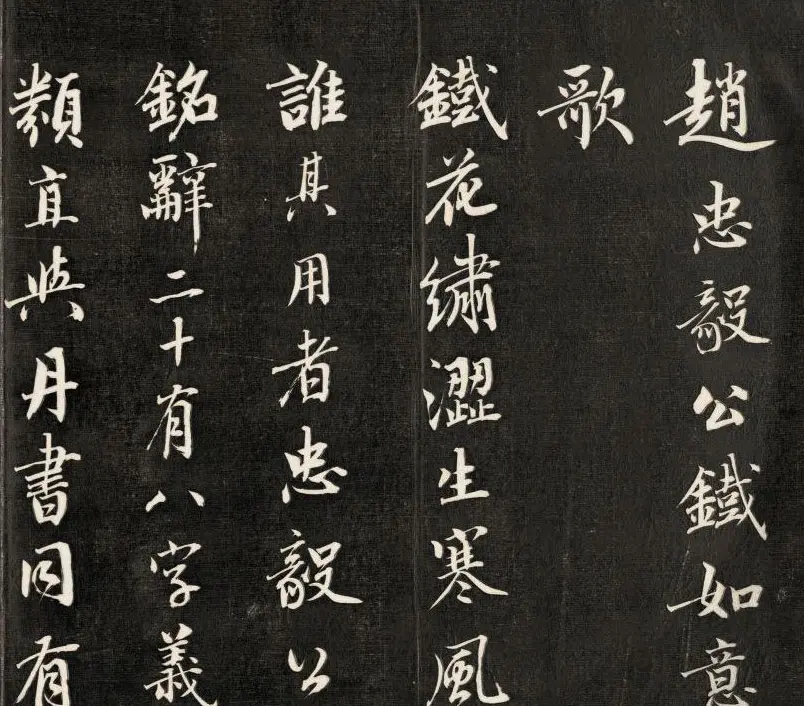 趙忠毅公鐵如意
歌
鐵花繡澀生寒風
誰其用者忠毅公
銘辭二十有八字義
類直與丹書同有